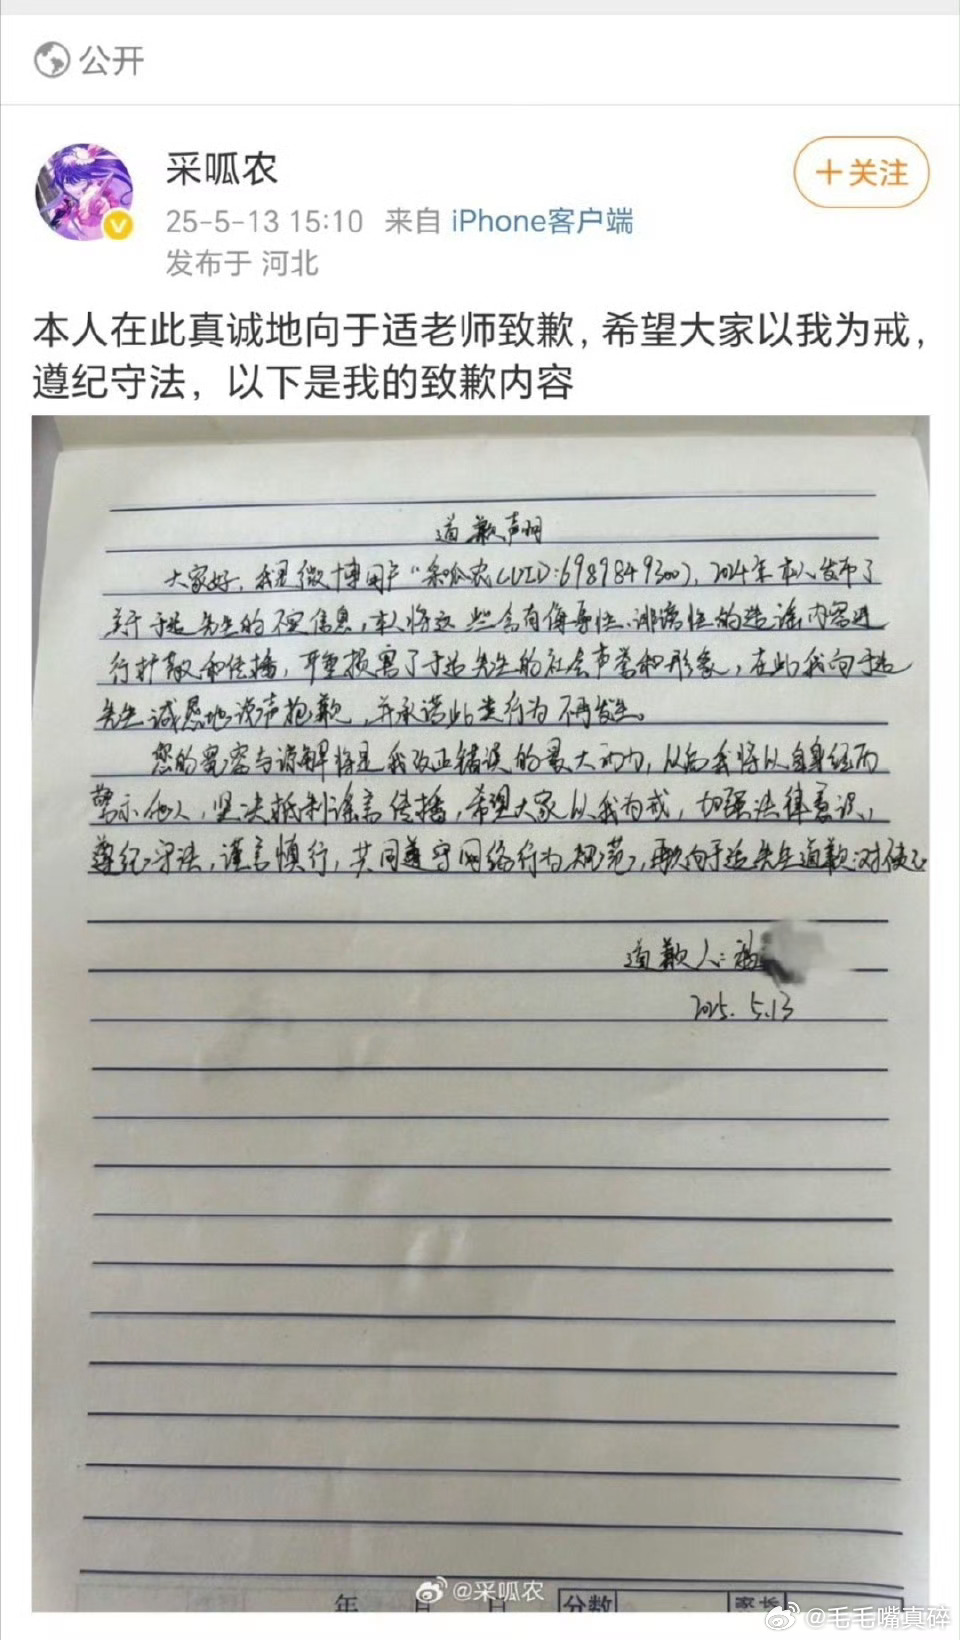 公开
采呱农
+关注
25-5-13 15:10 来自 iPhone客户端
发布于 河北
本人在此真诚地向于适老师致歉，希望大家以我为戒，
遵纪守法，以下是我的致歉内容
道歉声明
大家好，我是微博用户"采呱农(UID:6989849300)，2024年本人发布了
关于于适先生的不实信息，本人将这些含有侮辱性、诽谤性的造谣内容进
行扩散和传播，严重损害了于适先生的社会声誉和形象，在此我向于适
先生诚恳地说声抱歉，并承诺此类行为不再发生。
您的宽容与谅解将是我改正错误的最大动力，以后我将以自身经历
警示他人，坚决抵制谣言传播，希望大家以我为戒，加强法律意识，
遵纪守法，谨言慎行，共同遵守网络行为规范，再次向于适先生道歉，对
道歉人：
2025.5.13
@采呱农
年 月 日 分数 家长
@毛毛嘴真碎